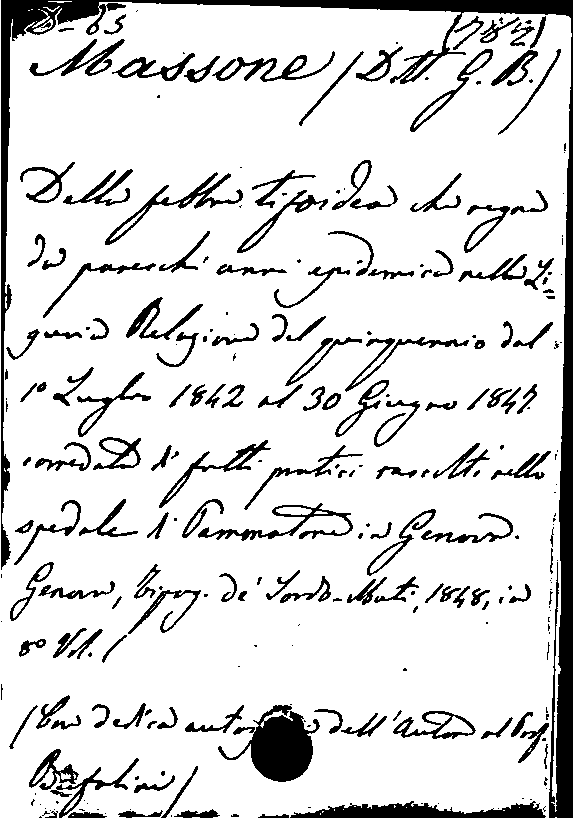 D-65 (782)
Massone (Dott. G. B.)
Della febbre tifoidea che regna
da parecchi anni epidemica nella Li=
guria Relazione del quinquennio dal
1º Luglio 1842 al 30 Giugno 1847.
corredata di fatti pratici raccolti nello
spedale di Pammatone in Genova.
Genova, Tipog. de' Sordo-Muti, 1848, in
8º Vol. 1
(Con dedica autografa dell'Autore al Prof.
Bufalini)